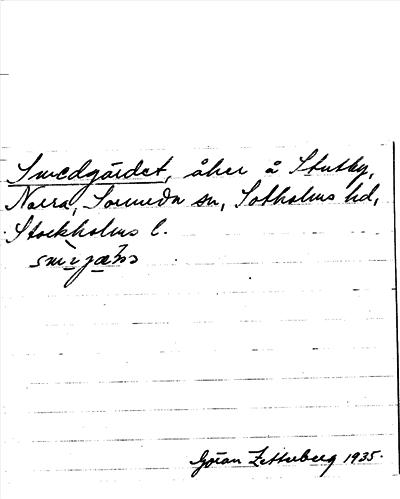 Smedgärdet, åker å Stutby,
Norra, Sorunda sn, Sotholms hd,
Stockholms l.
Göran Zetterberg 1935.